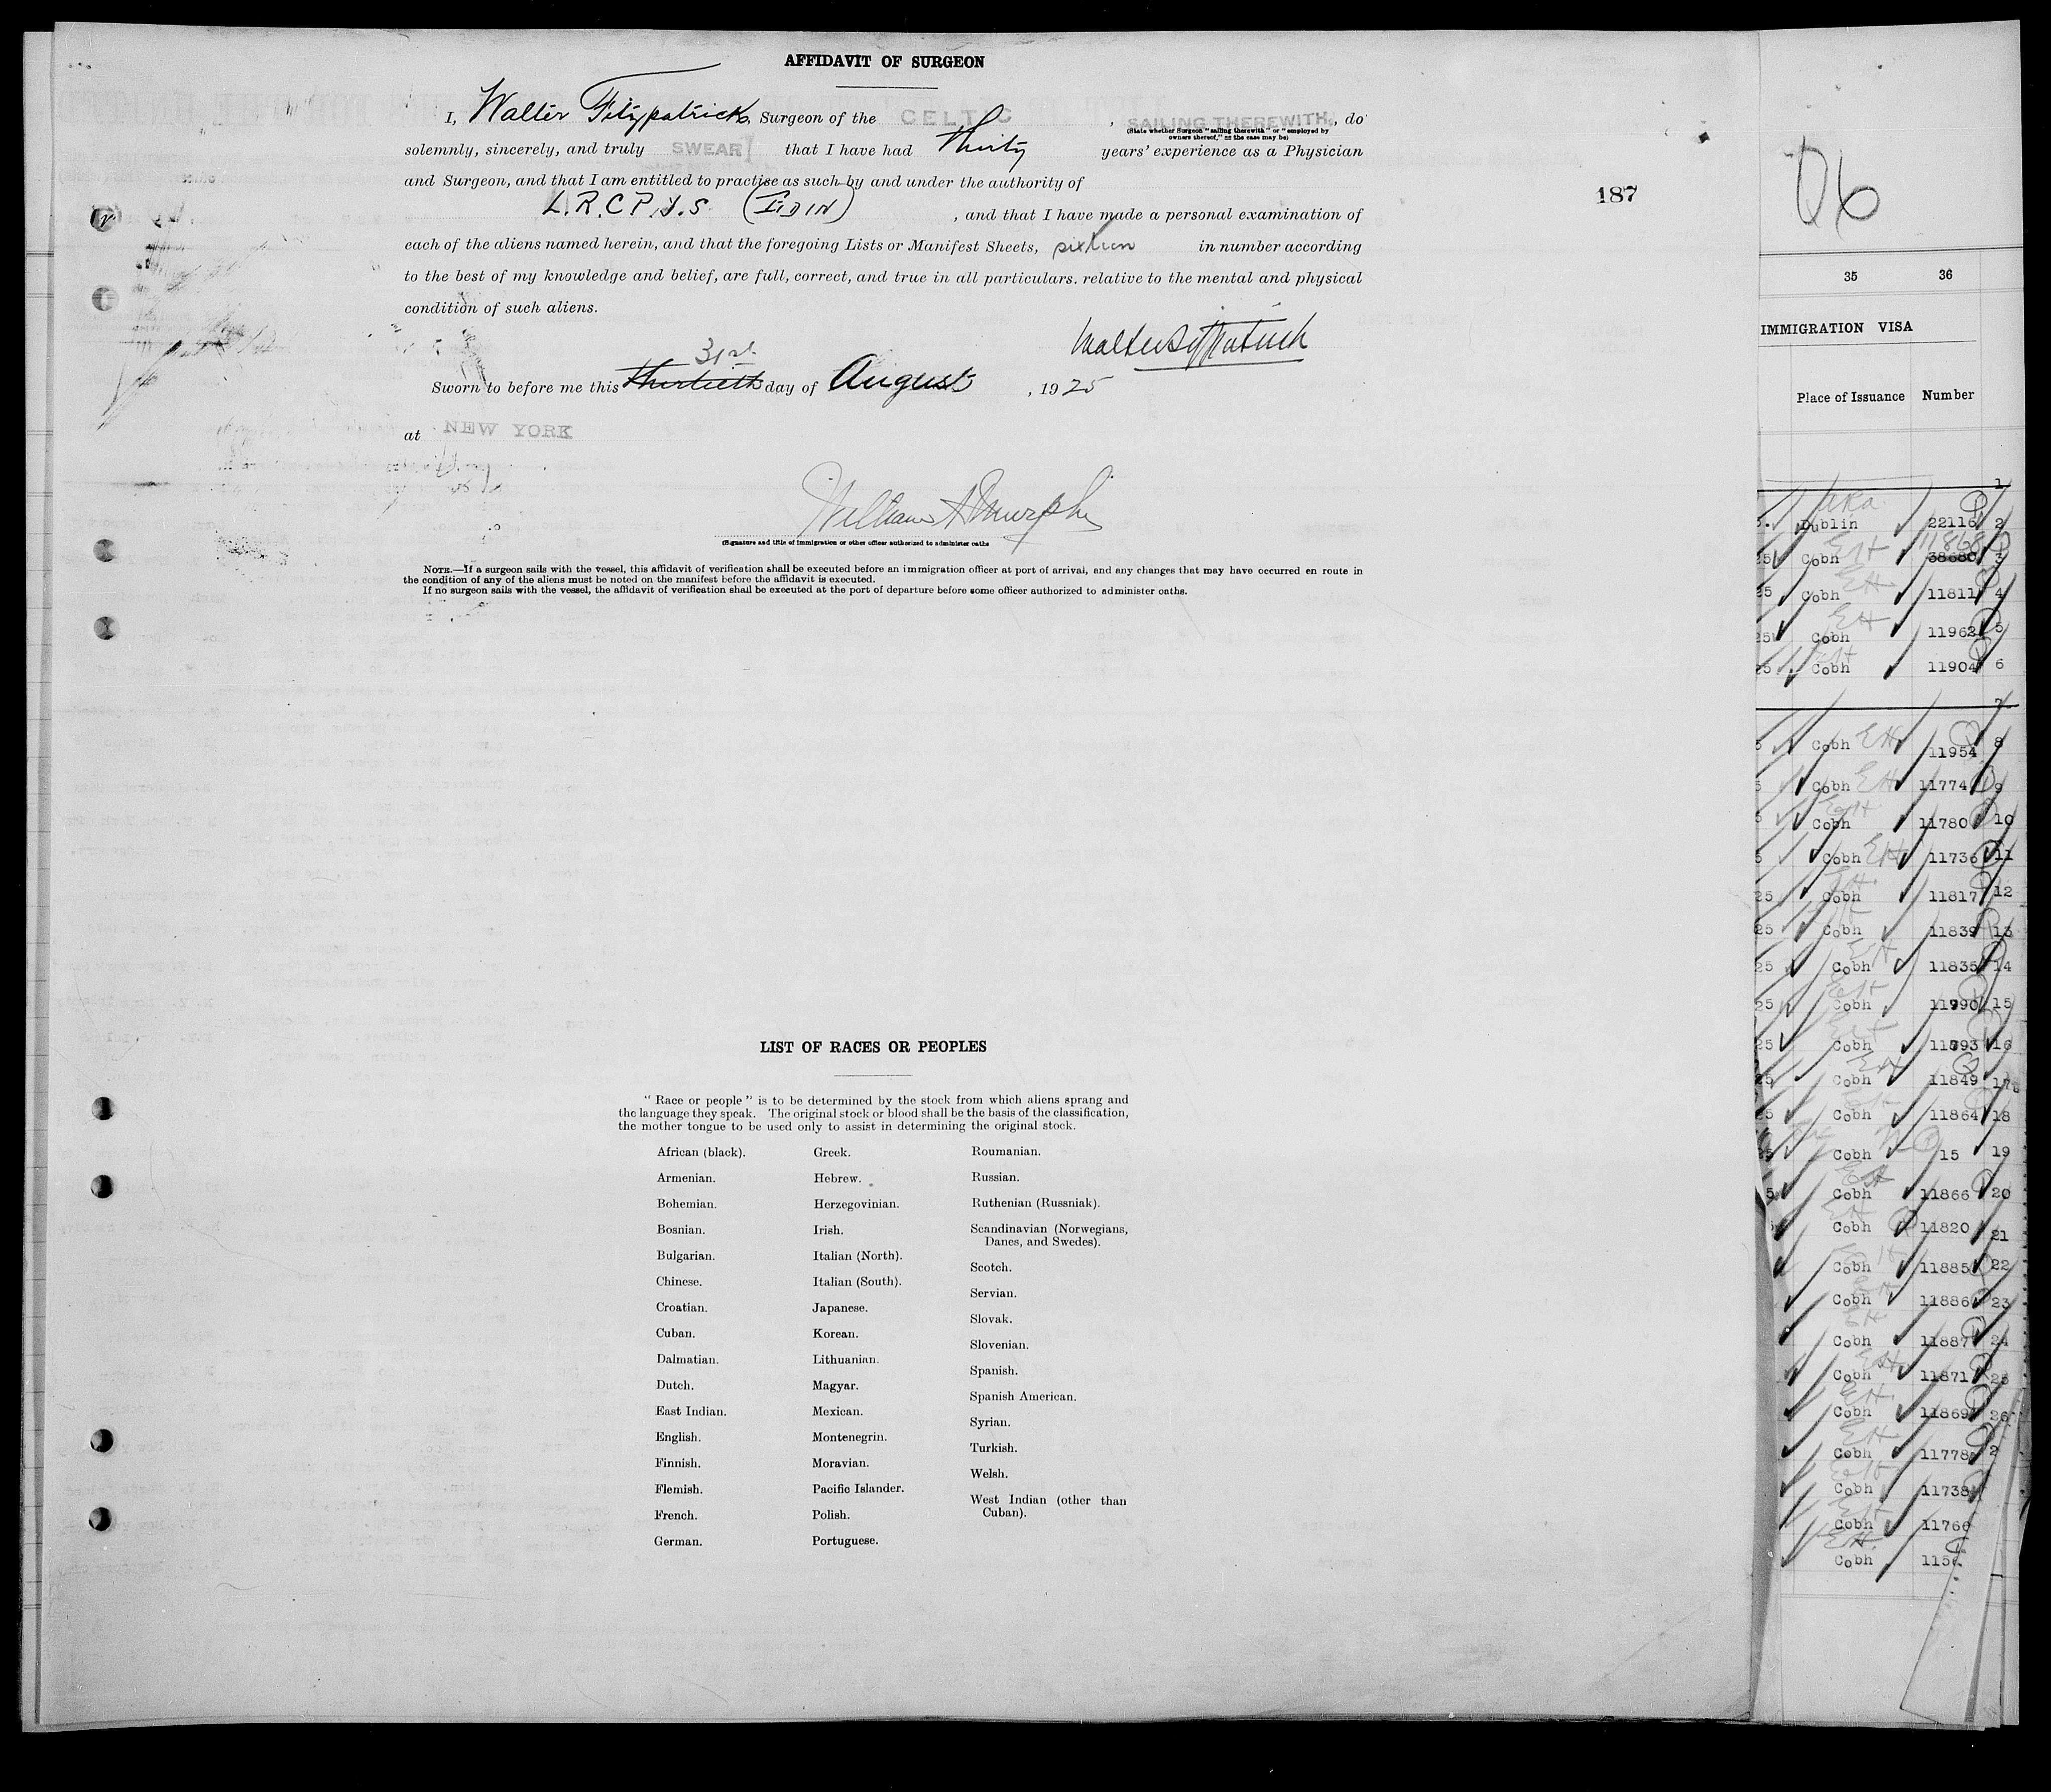 AFFIDAVIT OF SURGEON
I, Walter Fitzpatrick, Surgeon of the CELTIC, SAILING THEREWITH, do
(State whether Surgeon "sailing therewith" or "employed by
owners thereof," as the case may be)
solemnly, sincerely, and truly SWEAR that I have had thirty years' experience as a Physician
and Surgeon, and that I am entitled to practise as such by and under the authority of
L.R.C.P.&S. (EDIN), and that I have made a personal examination of
each of the aliens named herein, and that the foregoing Lists or Manifest Sheets, sixteen in number according
to the best of my knowledge and belief, are full, correct, and true in all particulars, relative to the mental and physical
condition of such aliens.
Walter Fitzpatrick
31st
Sworn to before me this thirtieth day of August, 1925
at NEW YORK
William A Murphy
(Signature and title of immigration or other officer authorized to administer oaths
NOTE.—If a surgeon sails with the vessel, this affidavit of verification shall be executed before an immigration officer at port of arrival, and any changes that may have occurred en route in
the condition of any of the aliens must be noted on the manifest before the affidavit is executed.
If no surgeon sails with the vessel, the affidavit of verification shall be executed at the port of departure before some officer authorized to administer oaths.
187
LIST OF RACES OR PEOPLES
"Race or people" is to be determined by the stock from which aliens sprang and
the language they speak. The original stock or blood shall be the basis of the classification,
the mother tongue to be used only to assist in determining the original stock.
African (black).
Armenian.
Bohemian.
Bosnian.
Bulgarian.
Chinese.
Croatian.
Cuban.
Dalmatian.
Dutch.
East Indian.
English.
Finnish.
Flemish.
French.
German.
Greek.
Hebrew.
Herzegovinian.
Irish.
Italian (North).
Italian (South).
Japanese.
Korean.
Lithuanian.
Magyar.
Mexican.
Montenegrin.
Moravian.
Pacific Islander.
Polish.
Portuguese.
Roumanian.
Russian.
Ruthenian (Russniak).
Scandinavian (Norwegians,
Danes, and Swedes).
Scotch.
Servian.
Slovak.
Slovenian.
Spanish.
Spanish American.
Syrian.
Turkish.
Welsh.
West Indian (other than
Cuban).
35 36
IMMIGRATION VISA
Place of Issuance Number
1
Dublin 22116 2
11868
25 Cobh 38680 3
25 Cobh 11811 4
25 Cobh 11962 5
25 Cobh 11904 6
7
5 Cobh EH 11954 8
5 Cobh EH 11774 9
5 Cobh 11780 10
5 Cobh EH 11736 11
25 Cobh 11817 12
25 Cobh 11839 13
25 Cobh 11835 14
25 Cobh 11990 15
25 Cobh 11893 16
25 Cobh 11849 17
25 Cobh 11864 18
25 Cobh 15 19
5 Cobh 11866 20
Cobh 11820 21
Cobh 11885 22
Cobh 11886 23
Cobh 11887 24
Cobh 11871 25
Cobh 11869 26
Cobh 11778 2
Cobh 11738
Cobh 11766
Cobh 115